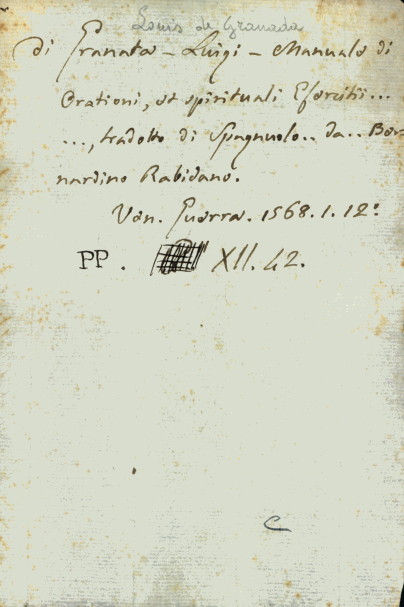 Louis de Granada
Di Granata - Luigi - Manuale di
Orationi, et spirituali Esercitii...
..., tradotto di Spagnuolo.. da.. Ber-
nardino Rabidano.
Ven. Guerra. 1568. 1. 12.º
PP. XII. 42.
C